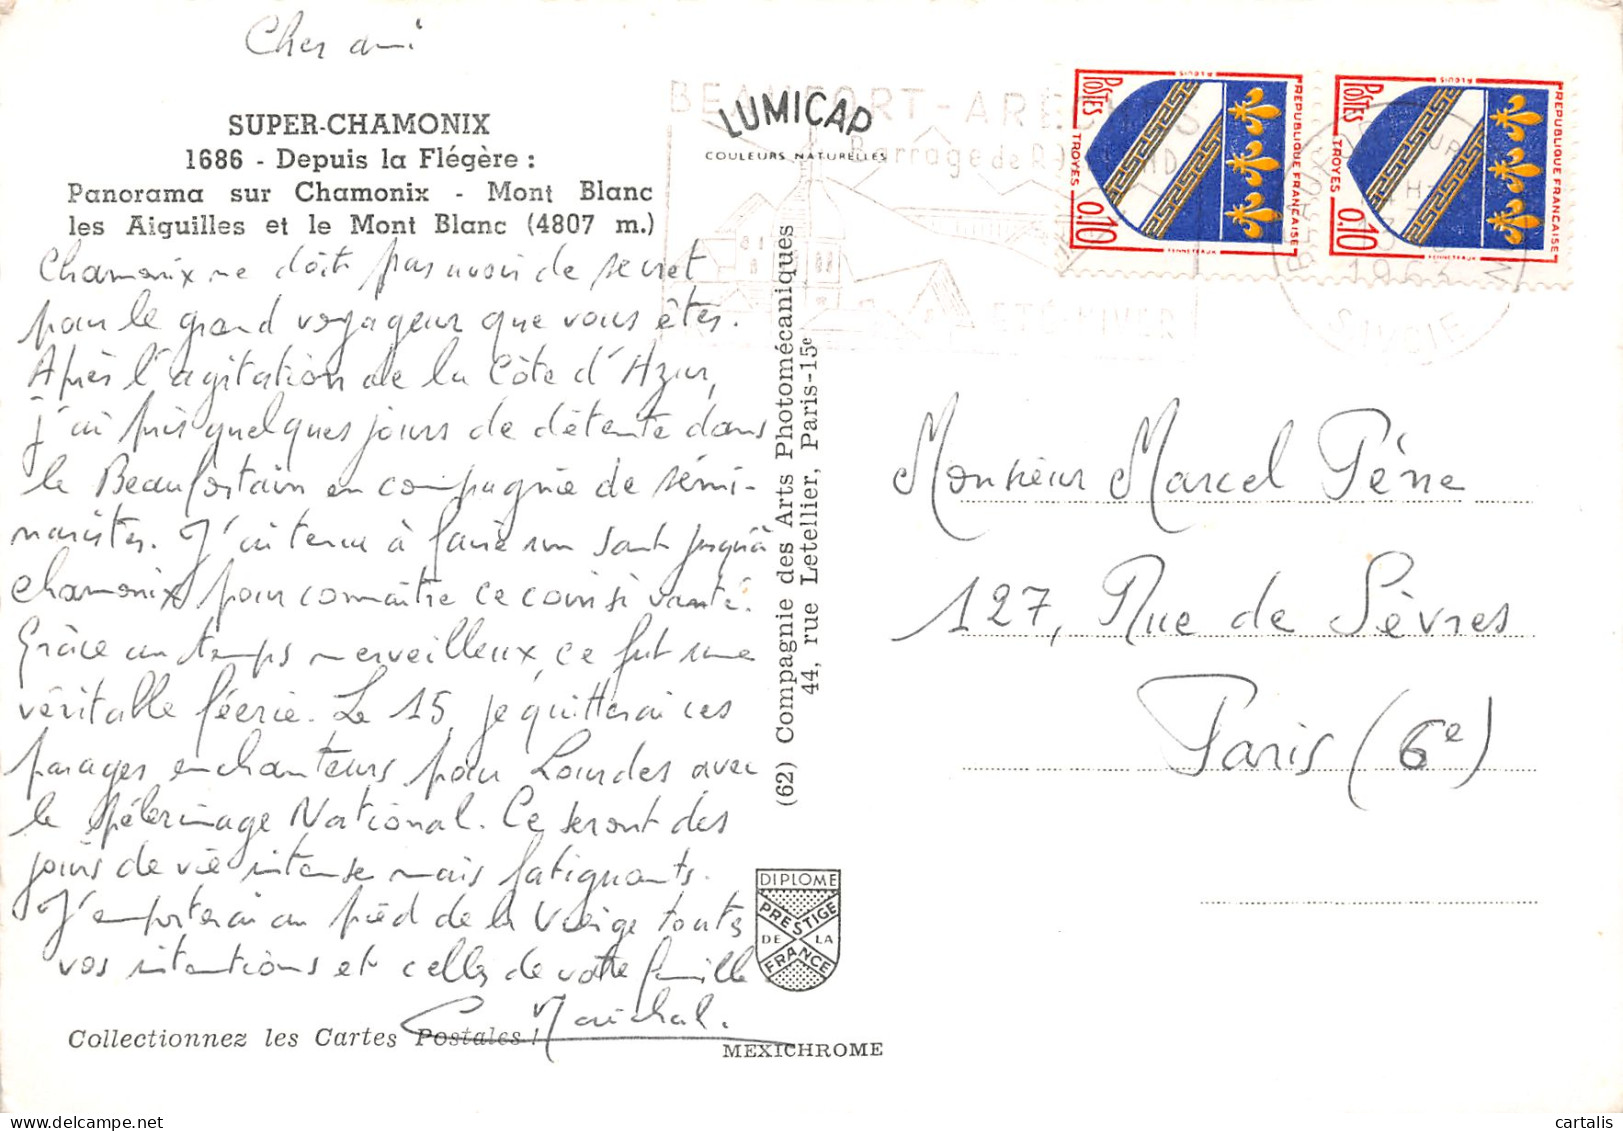 Cher ami
SUPER-CHAMONIX
1686 - Depuis la Flégère :
Panorama sur Chamonix - Mont Blanc
les Aiguilles et le Mont Blanc (4807 m.)
Chamonix ne doit pas avoir de secret
pour le grand voyageur que vous êtes.
Après l'agitation de la Côte d'Azur,
j'ai pris quelques jours de détente dans
le Beaufortain en compagnie de sémi-
naristes. J'ai tenu à faire un saut jusqu'à
Chamonix pour connaître ce coin si vanté.
Grâce au temps merveilleux, ce fut une
véritable féerie. Le 15, je quitterai ces
parages enchanteurs pour Lourdes avec
le pélerinage National. Ce seront des
jours de vie intense mais fatigants.
J'emporterai au pied de la Vierge toutes
vos intentions et celles de votre famille
Maréchal.
Collectionnez les Cartes Postales !
LUMICAP
COULEURS NATURELLES
(62) Compagnie des Arts Photomécaniques
44, rue Letellier, Paris-15e
DIPLOME
PRESTIGE
DE LA
FRANCE
MEXICHROME
BEAUFORT-ARÊCHES
Barrage de
ÉTÉ-HIVER
POSTES
REPUBLIQUE FRANÇAISE
TROYES
0,10
POSTES
REPUBLIQUE FRANÇAISE
TROYES
0,10
SAVOIE
Monsieur Marcel Pène
127, Rue de Sèvres
Paris (6e)
cartalis